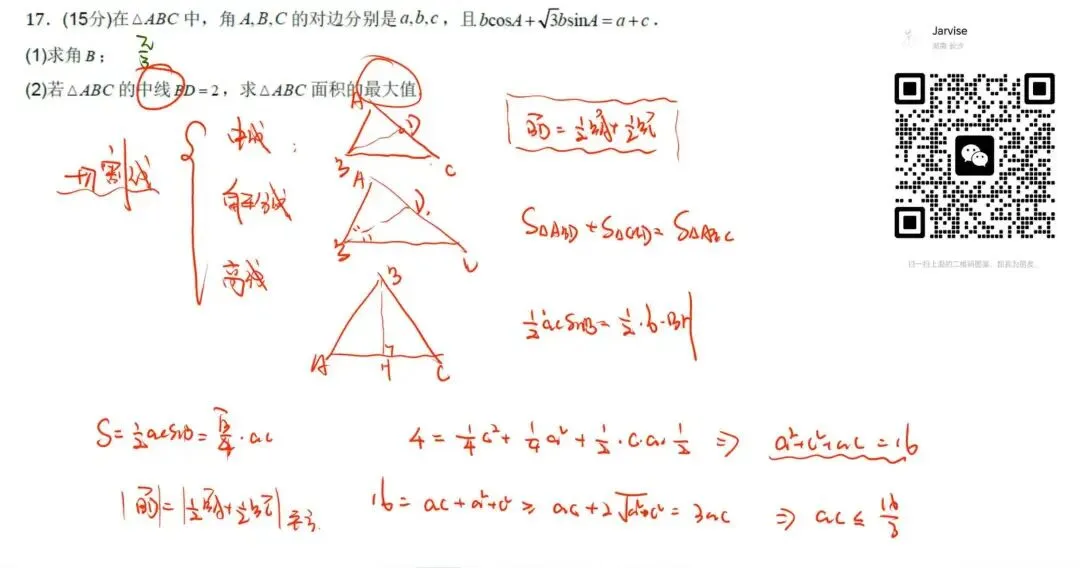 17.(15分)在△ABC 中，角 A,B,C 的对边分别是 a,b,c，且 bcosA+√3bsinA=a+c．
(1)求角 B；
π/3
(2)若△ABC 的中线 BD=2，求△ABC 面积的最大值
Jarvise
湖南 长沙
扫一扫上面的二维码图案，加我为朋友。
切割线
中线；
角平分线
高线
A
D
B
C
A
D
B
C
B
A
H
C
BD = 1/2 BA + 1/2 BC
S△ABD + S△CBD = S△ABC
1/2 acsinB = 1/2 · b · BH
S = 1/2 acsinB = √3/4 · ac
4 = 1/4 c² + 1/4 a² + 1/2 · c·a· 1/2 ⇒ a²+c²+ac = 16
|BD| = |1/2 BA + 1/2 BC| 平方
16 = ac + a² + c² ≥ ac + 2√a²·c² = 3ac ⇒ ac ≤ 16/3